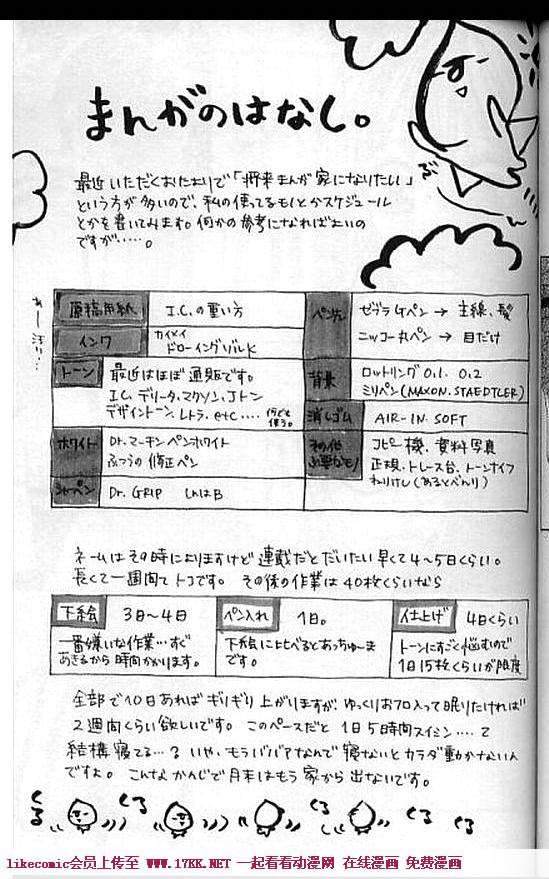 まんがのはなし。
最近いただくおたよりで「将来まんが家になりたい」
という方が多いので、私の使ってるモノとかスケジュール
とかを書いてみます。何かの参考になればよいの
ですが……。
原稿用紙 I.C.の重い方
インク カイメイ
ドローイングソルK
トーン 最近はほぼ通販です。
I.C、デリータ、マクソン、Jトン
デザイントーン、レトラ、etc....
何でも
使う。
ホワイト Dr.マーチンペンホワイト
ふつうの修正ペン
シャーペン Dr. GRIP しんはB
ペン先 ゼブラGペン → 主線、髪
ニッコー丸ペン → 目だけ
背景 ロットリング 0.1. 0.2
ミリペン(MAXON.STAEDTLER)
消しゴム AIR-IN SOFT
その他
必要なモノ コピー機、資料写真
定規、トレース台、トーンナイフ
ねりけし(あるとべんり)
ネームはその時によりますけど連載だとだいたい早くて4〜5日くらい。
長くて一週間てトコです。 その後の作業は40枚くらいなら
下絵 3日〜4日
一番嫌いな作業…すぐ
あきるから時間かかります。
ペン入れ 1日。
下絵に比べるとあっちゅーま
です。
仕上げ 4日くらい
トーンにすごく悩むので
1日15枚くらいが限度
全部で10日あればギリギリ上がりますが、ゆっくりおフロ入って眠りたければ
2週間くらい欲しいです。 このペースだと 1日5時間スイミン....て
結構寝てる…? いや、もうババアなんで寝ないとカラダ動かないん
ですよ。 こんなかんじで月末はもう家から出ないです。
くる くる くる くる くる
likecomic会员上传至 WWW.17KK.NET 一起看看动漫网 在线漫画 免费漫画